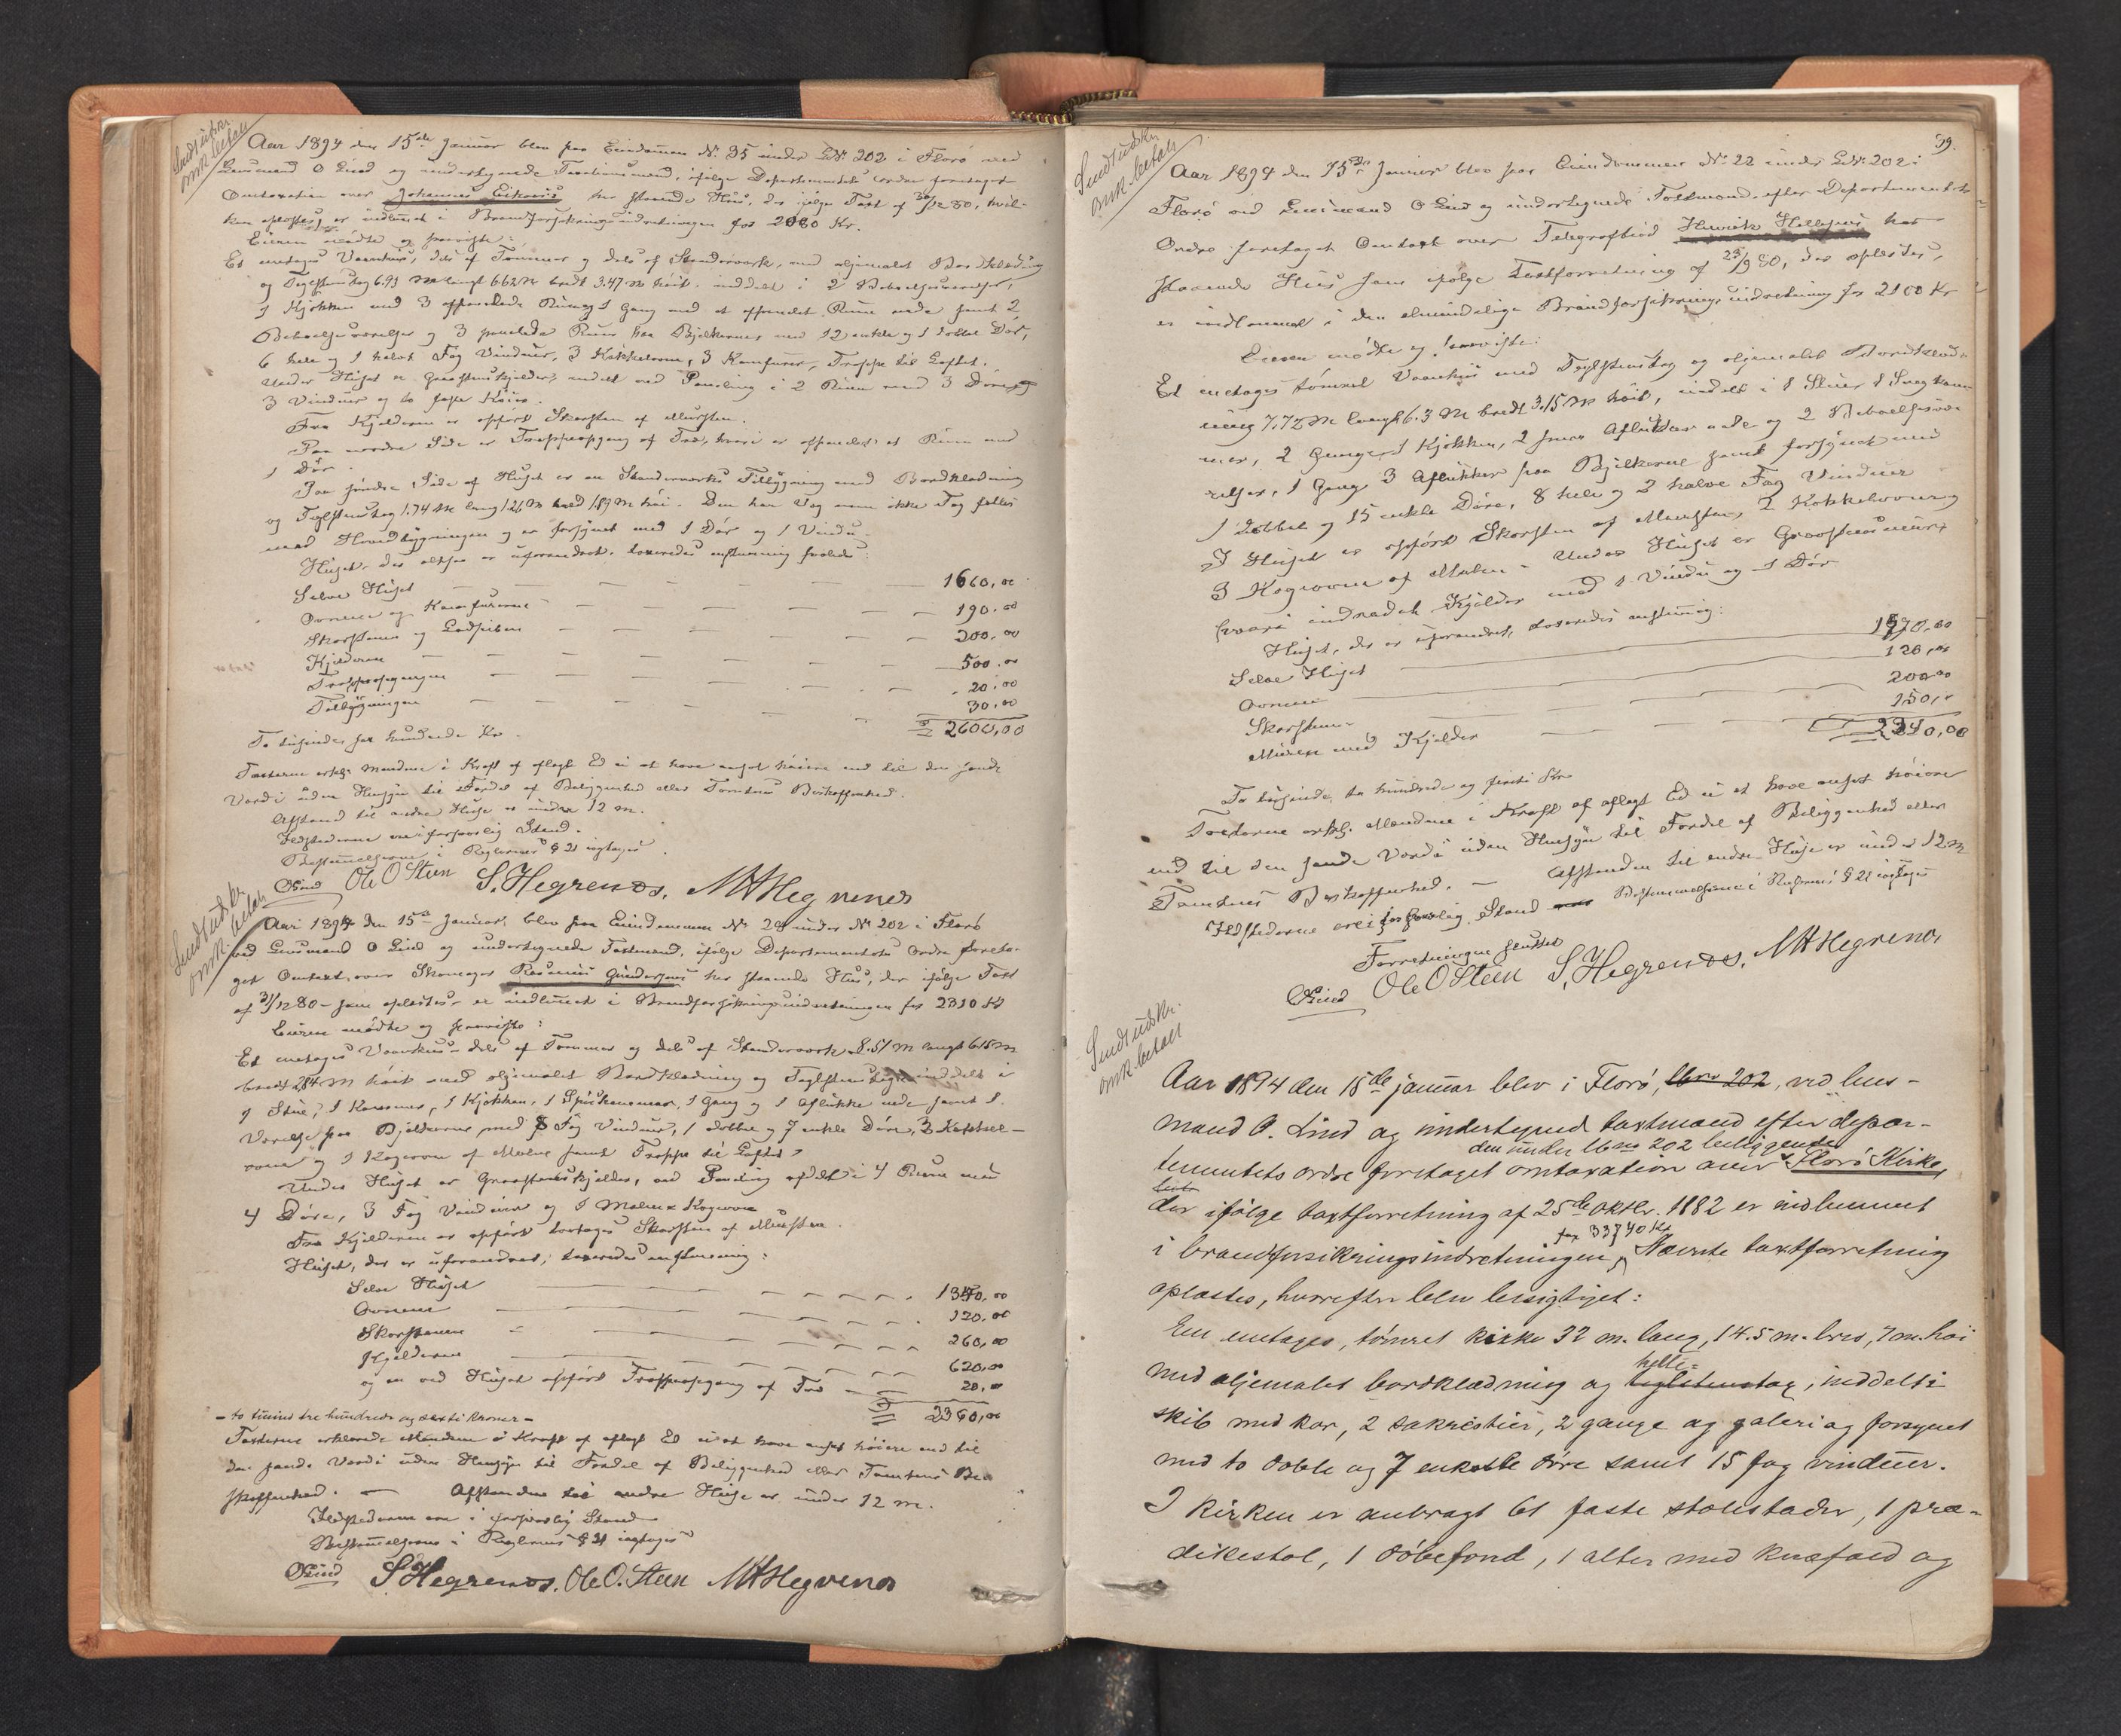 Sendt udskr.
omk. betalt
Aar 1894 den 15de Januar blev paa Eiendommen No 35 under LNo 202 i Florø ved
Lensmand O Lind og undertegnede Taxtmænd, ifølge Departementets Ordre foretaget
Omtaxation over Johannes her staaende Hus, der ifølge Taxt af 30/12 80, hvil-
ken oplæstes, er indlemmet i Brandforsikringsindretningen for 2080 Kr.
Eieren mødte og foreviste:
Et enetages Vaanhus, dels af Tømmer og dels af Standerværk, med oljemalet Bordklædning
og Teglstenstag 6.93 M langt 6.62 M bredt 3.47 M høit, inddelt i 2 Beboelsesværelser,
1 Kjøkken med 3 afpanelede Rum og 1 Gang med et afpanelet Rum nede samt 2
Beboelsesværelser og 3 panelede Rum paa Bjelkerne med 12 enkle og 1 dobbel Dør,
6 hele og 1 halvt Fag Vinduer, 3 Kakkelovne, 3 Komfurer, Trappe til Loftet.
Under Huset er Graastenskjelder, indelt ved Paneling i 2 Rum med 3 Døre og
3 Vinduer og to
Fra Kjelderen er opført Skorsten af Mursten.
Paa nordre Side er Trappeopgang af Træ, hvori er afpanelet et Rum med
1 Dør.
Paa søndre Side af Huset er en Standerværks Tilbygning med Bordklædning
og Teglstenstag 1.74 M lang 1.26 M bred 1.89 M høi. Den har Væg men ikke Tag fælles
med Hovedbygningen og er forsynet med 1 Dør og 1 Vindu.
Huset, der altsaa er uforandret, taxeredes enstemmig saaledes:
Selve Huset 1660,00
Ovnene og Komfurerne 190.00
Skorstenen og 200.00
Kjelderen 500.00
Trappeopgangen 20.00
Tilbygningen 30.00
2600,00
To tusinde sex hundrede Kr.
Taxterne erklr. Mændene i Kraft af aflagt Ed ei at have ansat høiere end til den sande
Værdi uden Hensyn til Fordel af Beliggenhed eller Tomtens Beskaffenhed.
Afstand til andre Huse er under 12 M.
Ildstederne ere i forsvarlig Stand.
Bestemmelserne i Reglernes § 21 iagtages.
OLind Ole O Steen S. Hegrenæs. MHHegrenes
Sendt udskr.
omk. betalt
Aar 1894 den 15de Januar blev paa Eiendommen No 28 under No 202 i Florø
ved Lensmand O Lind og undertegnede Taxtmænd, ifølge Departementets Ordre foreta-
get Omtaxt over Skomager Rasmus Gundersens her staaende Hus, der ifølge Taxt
af 31/12 80 – som oplæstes er indlemmet i Brandforsikringsindretningen for 2310 Kr
Eieren mødte og foreviste:
Et enetages Vaanhus – dels af Tømmer og dels af Standerværk 8.51 M langt 6.15 M
bredt 2.84 M høit med oljemalet Bordklædning og Teglstenstag inddelt i
1 Stue, 1 Kammer, 1 Kjøkken, 1 Spiskammer, 1 Gang og 1 Aflukke nede samt 1
Værelse paa Bjelkerne med 8 Fag Vinduer, 1 dobbel og 7 enkle Døre, 3 Kakkel-
ovne og 1 Kogeovn af Malm samt Trappe til Loftet.
Under Huset er Graastenskjelder, ved Paneling afdelt i 4 Rum med
4 Døre, 3 Fag Vinduer og 1 Malm Kogeovn
Fra Kjelderen er opført toetages Skorsten af Mursten.
Huset, der er uforandret, taxeredes enstemmig:
Selve Huset 1340,00
Ovnene 120.00
Skorstenen 260,00
Kjelderen 620,00
og en ved Huset opført Trappeopgang af Træ 20,00
2360,00
– to tusind tre hundrede og sexti kroner –
Taxterne erklærede Mændene i Kraft af aflagt Ed ei at have ansat høiere end til
den sande Værdi uden Hensyn til Fordel af Beliggenhed eller Tomtens Be-
skaffenhed. – Afstanden til andre Huse er under 12 M.
Ildstederne ere i forsvarlig Stand
Bestemmelserne i Reglernes § 21 iagtages
OLind S Hegrenæs. Ole O. Steen MHHegrenes
59.
Sendt udskr.
omk. betalt
Aar 1894 den 15de Januar blev paa Eiendommen No 22 under LNo 202 i
Florø ved Lensmand O Lind og undertegnede Taxtmænd, efter Departementets
Ordre foretaget Omtaxt over Telegrafbud Henrik her
staaende Hus som ifølge Taxtforretning af 23/9 80, der oplæstes,
er indlemmet i den almindelige Brandforsikringsindretning for 2100 Kr
Eieren mødte og foreviste:
Et enetages tømret Vaanhus med Teglstenstag og oljemalet Bordklæd-
ning 7.78 M langt 6.3 M bredt 3.15 M høit, inddelt i 1 Stue 1 Sengkam-
mer, 2 Gange, 1 Kjøkken, 2 smaa Aflukker nede og 2 Beboelsesvæ-
relser, 1 Gang 3 Aflukker paa Bjelkerne samt forsynet med
1 dobbel og 15 enkle Døre, 8 hele og 2 halve Fag Vinduer
I Huset er opført Skorsten af Mursten, 2 Kakkelovne og
3 Kogeovne af Malm – Under Huset er Graastensmur,
hvori indredet Kjelder med 1 Vindu og 1 Dør
Huset, der er uforandret, taxeredes enstemmig:
Selve Huset 1770,00
Ovnene 120,00
Skorstenen 200,00
Muren med Kjelder 150,00
2240,00
To tusinde, to hundrede og førti Kr
Taxterne erkl. Mændene i Kraft af aflagt Ed ei at have ansat høiere
end til den sande Værdi uden Hensyn til Fordel af Beliggenhed eller
Tomtens Beskaffenhed. – Afstanden til andre Huse er under 12 M
Ildstederne ere i forsvarlig Stand Bestemmelserne i Reglernes § 21 iagtages
Forretningen sluttet
OLind Ole O Steen S. Hegrenæs. MHHegrenes
Sendt udskr.
omk. betalt
Aar 1894 den 15de januar blev i Florø, lbno 202, ved lens-
mand O. Lind og undertegned taxtmænd efter depar-
den under lbno 202 beliggende
tementets ordre foretaget omtaxation over Florø Kirke,
der ifølge taxtforretning af 25de oktbr. 1882 er indlemmet
for 33740 Kr
i brandforsikringsindretningen, Nævnte taxtforretning
oplæstes, hvorefter blev besigtiget:
En enetages, tømret kirke 32 m. lang, 14.5 m. bred, 7 m. høi
helle-
med oljemalet bordklædning og teglstenstag, inddelt i
skib med kor, 2 sakristier, 2 gange og galeri og forsynet
med to doble og 7 enkelte døre samt 15 fag vinduer.
I kirken er anbragt 61 faste stolestader, 1 præ-
dikestol, 1 døbefond, 1 alter med knæfald og